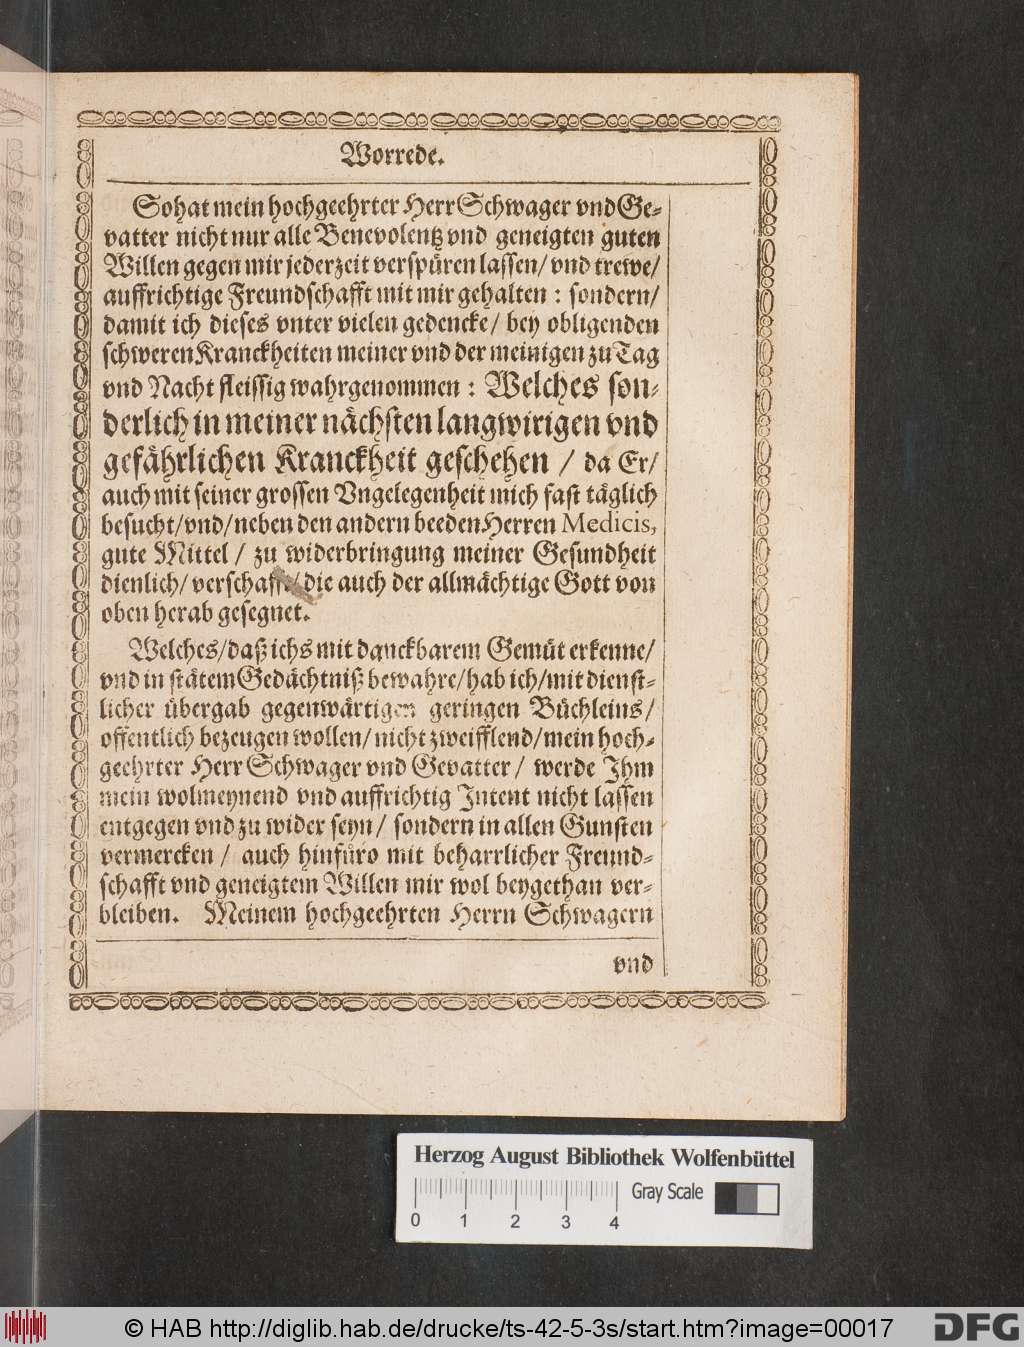 Vorrede.
So hat mein hochgeehrter Herr Schwager vnd Ge-
vatter nicht nur alle Benevolentz vnd geneigten guten
Willen gegen mir jederzeit verspüren lassen/ vnd trewe/
auffrichtige Freundschafft mit mir gehalten : sondern/
damit ich dieses vnter vielen gedencke/ bey obligenden
schweren Kranckheiten meiner vnd der meinigen zu Tag
vnd Nacht fleissig wahrgenommen : Welches son-
derlich in meiner nächsten langwirigen vnd
gefährlichen Kranckheit geschehen / da Er/
auch mit seiner grossen Vngelegenheit mich fast täglich
besucht/ vnd/ neben den andern beeden Herren Medicis,
gute Mittel / zu widerbringung meiner Gesundheit
dienlich/ verschafft/ die auch der allmächtige Gott von
oben herab gesegnet.
Welches/ daß ichs mit danckbarem Gemüt erkenne/
vnd in stätem Gedächtniß bewahre/ hab ich/ mit dienst-
licher übergab gegenwärtigen geringen Büchleins/
offentlich bezeugen wollen/ nicht zweifflend/ mein hoch-
geehrter Herr Schwager vnd Gevatter/ werde Ihm
mein wolmeynend vnd auffrichtig Intent nicht lassen
entgegen vnd zu wider seyn/ sondern in allen Gunsten
vermercken / auch hinfüro mit beharrlicher Freund-
schafft vnd geneigtem Willen mir wol beygethan ver-
bleiben. Meinem hochgeehrten Herrn Schwagern
vnd
Herzog August Bibliothek Wolfenbüttel
Gray Scale
0 1 2 3 4
© HAB http://diglib.hab.de/drucke/ts-42-5-3s/start.htm?image=00017
DFG